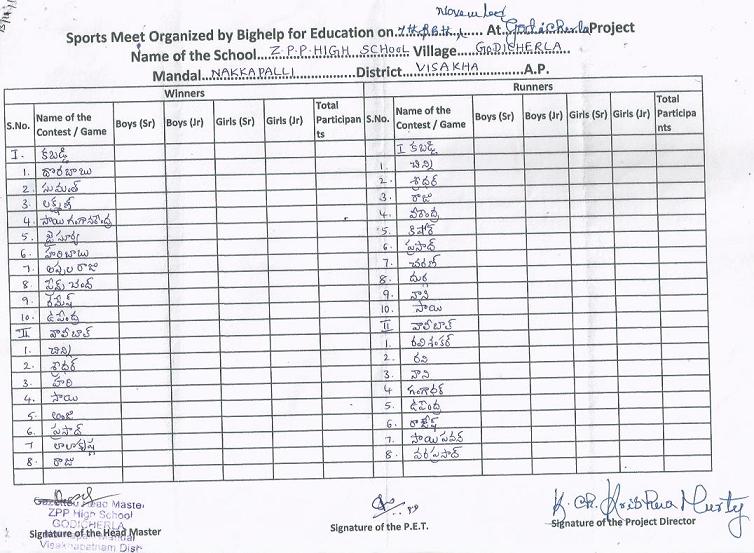 November
Sports Meet Organized by Bighelp for Education on 7th & 8th At Godicherla Project
Name of the School Z.P.P. HIGH SCHOOL Village GODICHERLA
Mandal NAKKAPALLI District VISAKHA A.P.
Winners Runners
S.No. Name of the Contest / Game Boys (Sr) Boys (Jr) Girls (Sr) Girls (Jr) Total Participants S.No. Name of the Contest / Game Boys (Sr) Boys (Jr) Girls (Sr) Girls (Jr) Total Participants
I. కబడ్డి I కబడ్డి
1. 1. చిన్ని
2. సుమంత్ 2. శ్రీధర్
3. లక్ష్మణ్ 3. రాజు
4. సాయి గంగానరేంద్ర 4. వీరేంద్ర
5. జై సూర్య 5. కిషోర్
6. హరిబాబు 6. ప్రసాద్
7. అప్పల రాజు 7. చరణ్
8. ప్రేమ్ చంద్ 8. దుర్గ
9. రమేష్ 9. నాని
10. ఉపేంద్ర 10. సాయి
II వాలీబాల్ II వాలీబాల్
1. చిన్ని 1. రవిశంకర్
2. శ్రీధర్ 2. రవి
3. హరి 3. నాని
4. సాయి 4 గంగాధర్
5. అంజి 5. ఉపేంద్ర
6. ప్రసాద్ 6. రాజేష్
7 బాలకృష్ణ 7. సాయి పవన్
8. రాజు 8. వరప్రసాద్
K. Ch. Krishna Murty
Gazetted Head Master
ZPP High School
GODICHERLA
Signature of the Head Master Signature of the P.E.T. Signature of the Project Director
Visakhapatnam Dist